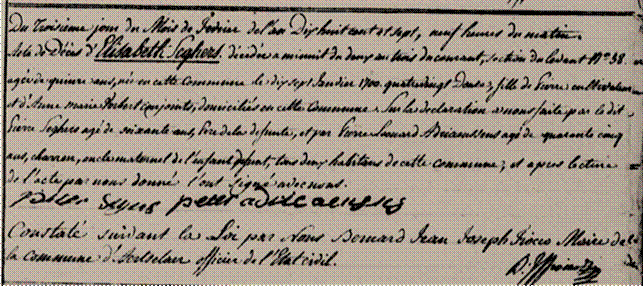 Du Troisième jour du Mois de Février de l'an Dix huit cent et sept, neuf heures du matin.
Acte de Décès d'Elisabeth Seghers décédée à minuit du deux au trois du courant, section du levant N° 38.
agée de quinze ans, né en cette Commune le dix sept Janvier 1700 quatre vingt Douze, fille de Pierre cultivateur
et d'Anne marie conjoints, domiciliés en cette Commune. Sur la déclaration à nous faite par le dit
Pierre Seghers agé de soixante ans, Père de la défunte, et par Pierre Adriaenssens agé de quarante cinq
ans, charron, oncle maternel de l'enfant défunt, tous deux habitans de cette commune; et après lecture
de l'acte par nous donné l'ont signé avec nous.
peeter adriaenssens
Constaté suivant la Loi par Nous Bernard Jean Joseph Maire de
la commune d'Aertselaer officier de l'Etat civil.